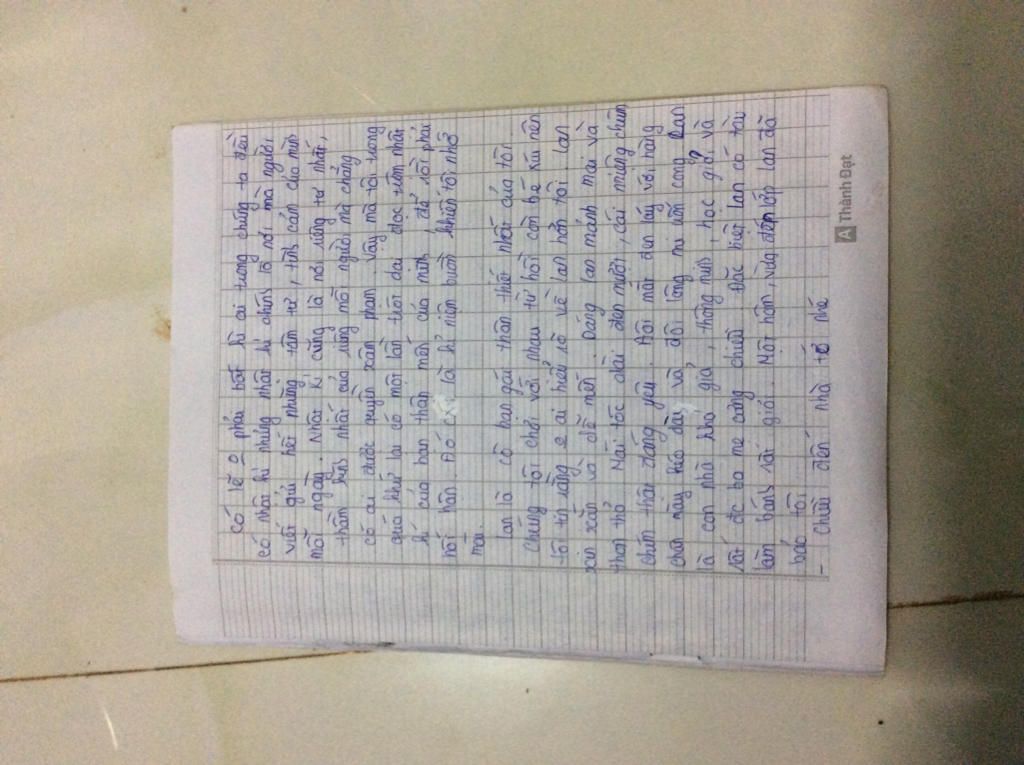 Có lẽ o phải bất kì ai trong chúng ta đều
có nhật kí nhưng nhật kí chính là nơi mà người
viết gửi hết những tâm tư, tình cảm của mình
mỗi ngày. Nhật kí cũng là nơi riêng tư nhất,
thầm kính nhất của riêng mỗi người mà chẳng
có ai được quyền xâm phạm. Vậy mà tôi trong
quá khứ lại có một lần trót dại đọc trộm nhật
kí của bạn thân mến của mình, để rồi phải
hối hận. Đó là kỉ niệm buồn khiến tôi nhớ
mãi.
Lan là cô bạn gái thân thiết nhất của tôi.
Chúng tôi chơi với nhau từ hồi còn bé xíu nên
tôi tin rằng o ai hiểu rõ về Lan hơn tôi. Lan
xinh xắn và dễ mến. Dáng Lan mảnh mai và
thon thả. Mái tóc dài đen mượt, cái miệng chúm
chím thật đáng yêu. Đôi mắt đen láy với hàng
chân mày kéo dài và đôi lông mi uốn cong. Lan
là con nhà khá giả, thông minh, học giỏi và
rất đc ba mẹ cưng chiều. Đặc biệt Lan có tài
làm bánh rất giỏi. Một hôm, vừa đến lớp Lan đã
bảo tôi:
- Chiều đến nhà tớ nhé
A Thành Đạt